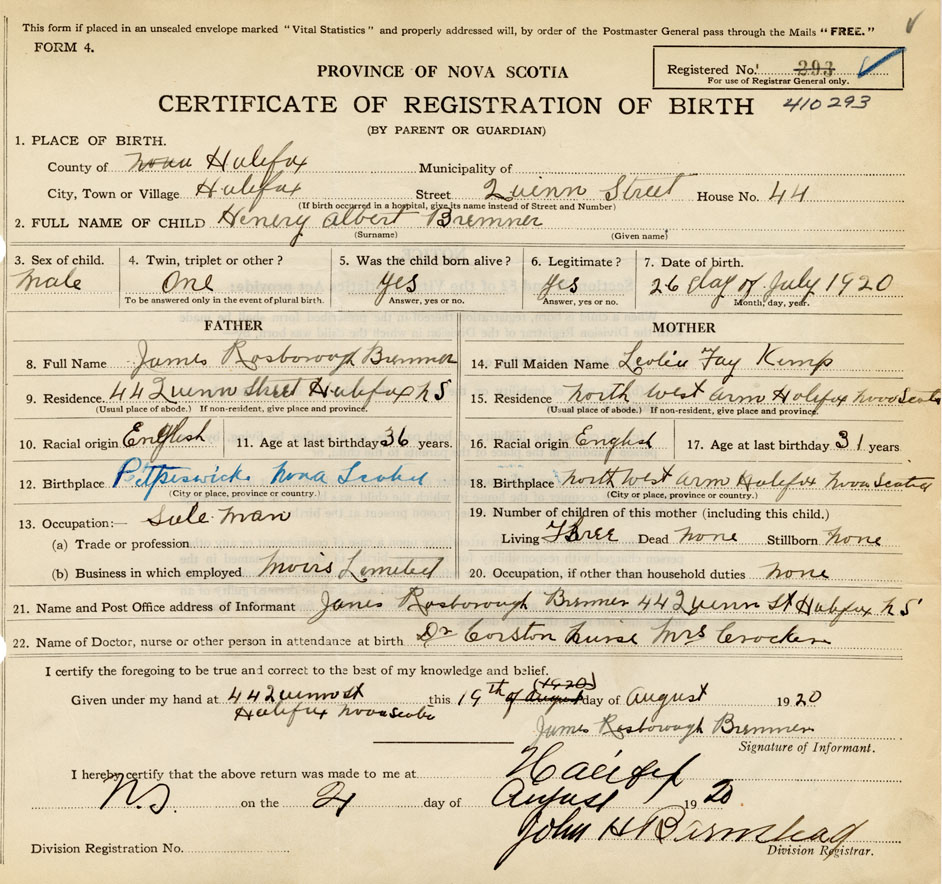 This form if placed in an unsealed envelope marked "Vital Statistics" and properly addressed will, by order of the Postmaster General pass through the Mails "FREE."
FORM 4.
Registered No. 293
For use of Registrar General only.
PROVINCE OF NOVA SCOTIA
CERTIFICATE OF REGISTRATION OF BIRTH 410293
(BY PARENT OR GUARDIAN)
1. PLACE OF BIRTH.
County of Nova Halifax Municipality of
City, Town or Village Halifax Street Quinn Street House No. 44
(If birth occurred in a hospital, give its name instead of Street and Number)
2. FULL NAME OF CHILD Henery Albert Bremner
(Surname) (Given name)
3. Sex of child. 4. Twin, triplet or other? 5. Was the child born alive? 6. Legitimate? 7. Date of birth.
Male One yes yes 26 day of July 1920
To be answered only in the event of plural birth. Answer, yes or no. Answer, yes or no. Month, day, year.
FATHER MOTHER
8. Full Name James Rosborough Bremner 14. Full Maiden Name Fay Kemp
9. Residence 44 Quinn Street Halifax NS 15. Residence North West Arm Halifax Nova Scotia
(Usual place of abode.) If non-resident, give place and province. (Usual place of abode.) If non-resident, give place and province.
10. Racial origin English 11. Age at last birthday 36 years. 16. Racial origin English 17. Age at last birthday 31 years
12. Birthplace Petpeswick Nova Scotia 18. Birthplace North West Arm Halifax Nova Scotia
(City or place, province or country.) (City or place, province or country.)
13. Occupation:— Sale man 19. Number of children of this mother (including this child.)
(a) Trade or profession Living Three Dead None Stillborn None
(b) Business in which employed Moirs Limeted 20. Occupation, if other than household duties None
21. Name and Post Office address of Informant James Rosborough Bremner 44 Quinn St Halifax NS
22. Name of Doctor, nurse or other person in attendance at birth Dr Corston Nurse Mrs Crocker
I certify the foregoing to be true and correct to the best of my knowledge and belief.
(1920)
Given under my hand at 44 Quinn st this 19th of August day of August 1920
Halifax Nova Scotia
James Rosborough Bremner
Signature of Informant.
I hereby certify that the above return was made to me at Halifax
N.S. on the 21 day of August 1920
John H Barnstead
Division Registration No. Division Registrar.